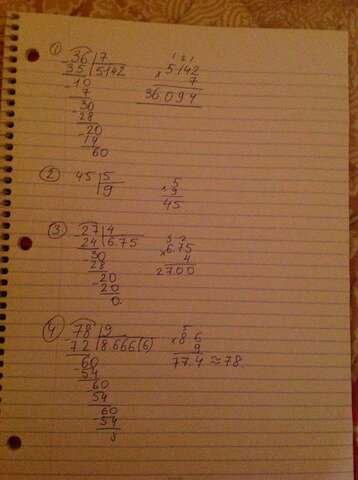 1 36 | 7
35 | 5142
-10
7
-30
28
-20
14
60
1 2 1
×5142
7
36.094
2 45 | 5
9
5
×9
45
3 27 | 4
24 | 6.75
-30
28
-20
-20
0
3 2
×6.75
4
27.00
4 78 | 9
72 | 8.666(6)
60
-54
60
54
60
-54
5
×8 6
9
77.4 ≈ 78.